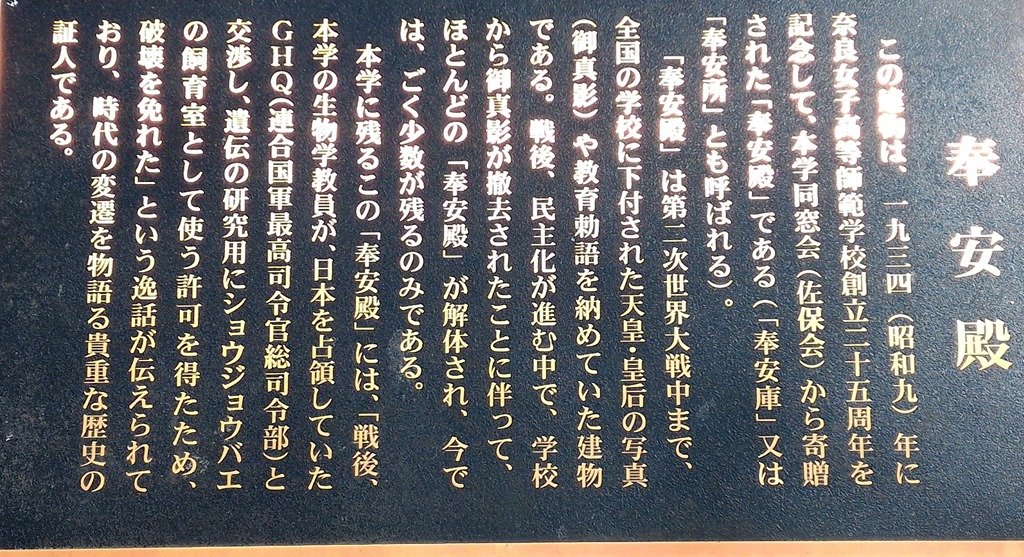 奉安殿
この建物は、一九三四（昭和九）年に
奈良女子高等師範学校創立二十五周年を
記念して、本学同窓会（佐保会）から寄贈
された「奉安殿」である（「奉安庫」又は
「奉安所」とも呼ばれる）。
「奉安殿」は第二次世界大戦中まで、
全国の学校に下付された天皇・皇后の写真
（御真影）や教育勅語を納めていた建物
である。戦後、民主化が進む中で、学校
から御真影が撤去されたことに伴って、
ほとんどの「奉安殿」が解体され、今で
は、ごく少数が残るのみである。
本学に残るこの「奉安殿」には、「戦後、
本学の生物学教員が、日本を占領していた
GHQ（連合国軍最高司令官総司令部）と
交渉し、遺伝の研究用にショウジョウバエ
の飼育室として使う許可を得たため、
破壊を免れた」という逸話が伝えられて
おり、時代の変遷を物語る貴重な歴史の
証人である。